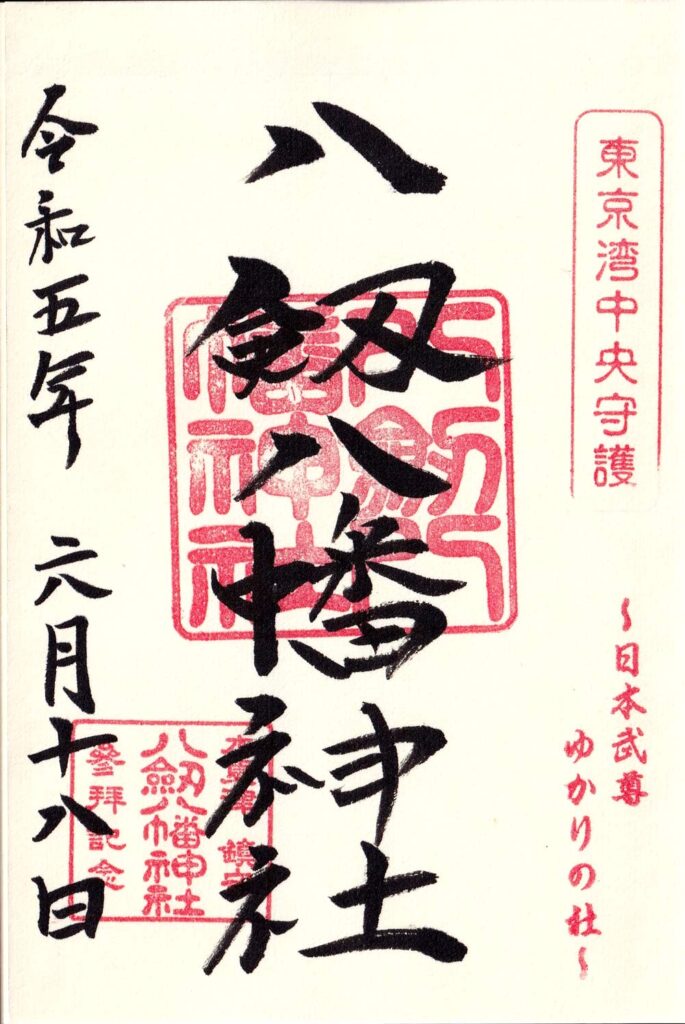 東京湾中央守護
～日本武尊
ゆかりの社～
八劔八幡神社
八劔八幡神社
鎮守
八劔八幡神社
参拝記念
令和五年 六月十八日